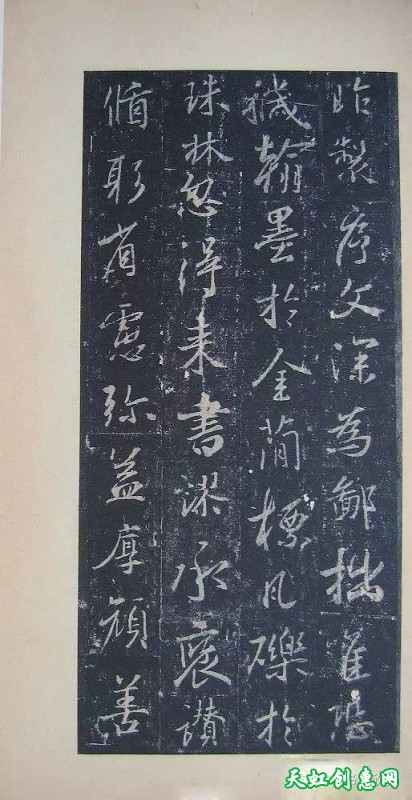 昨製序文深為鄙拙唯恐
穢翰墨於金簡標凡礫於
珠林忽得来書謬承褒讃
循躬省慮弥益厚顔善
天虹创意网